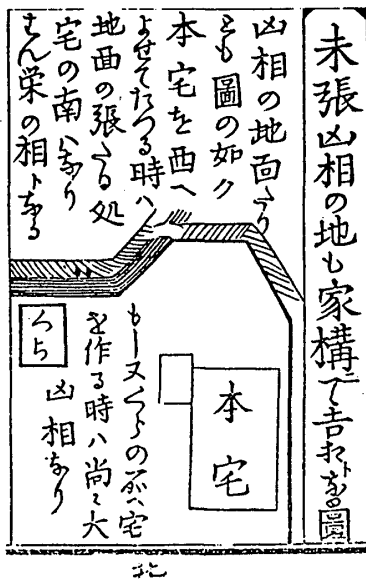 未張凶相の地も家構ニて吉相ト なる圖
凶相の地面たり
とも圖の如ク
本宅を西へ
よせてたつる時ハ
地面の張たる処
宅の南ハなり
はん栄の相トなる
本宅
くら
もし又くらの所へ宅
を作る時ハ尚々大
凶相なり
北